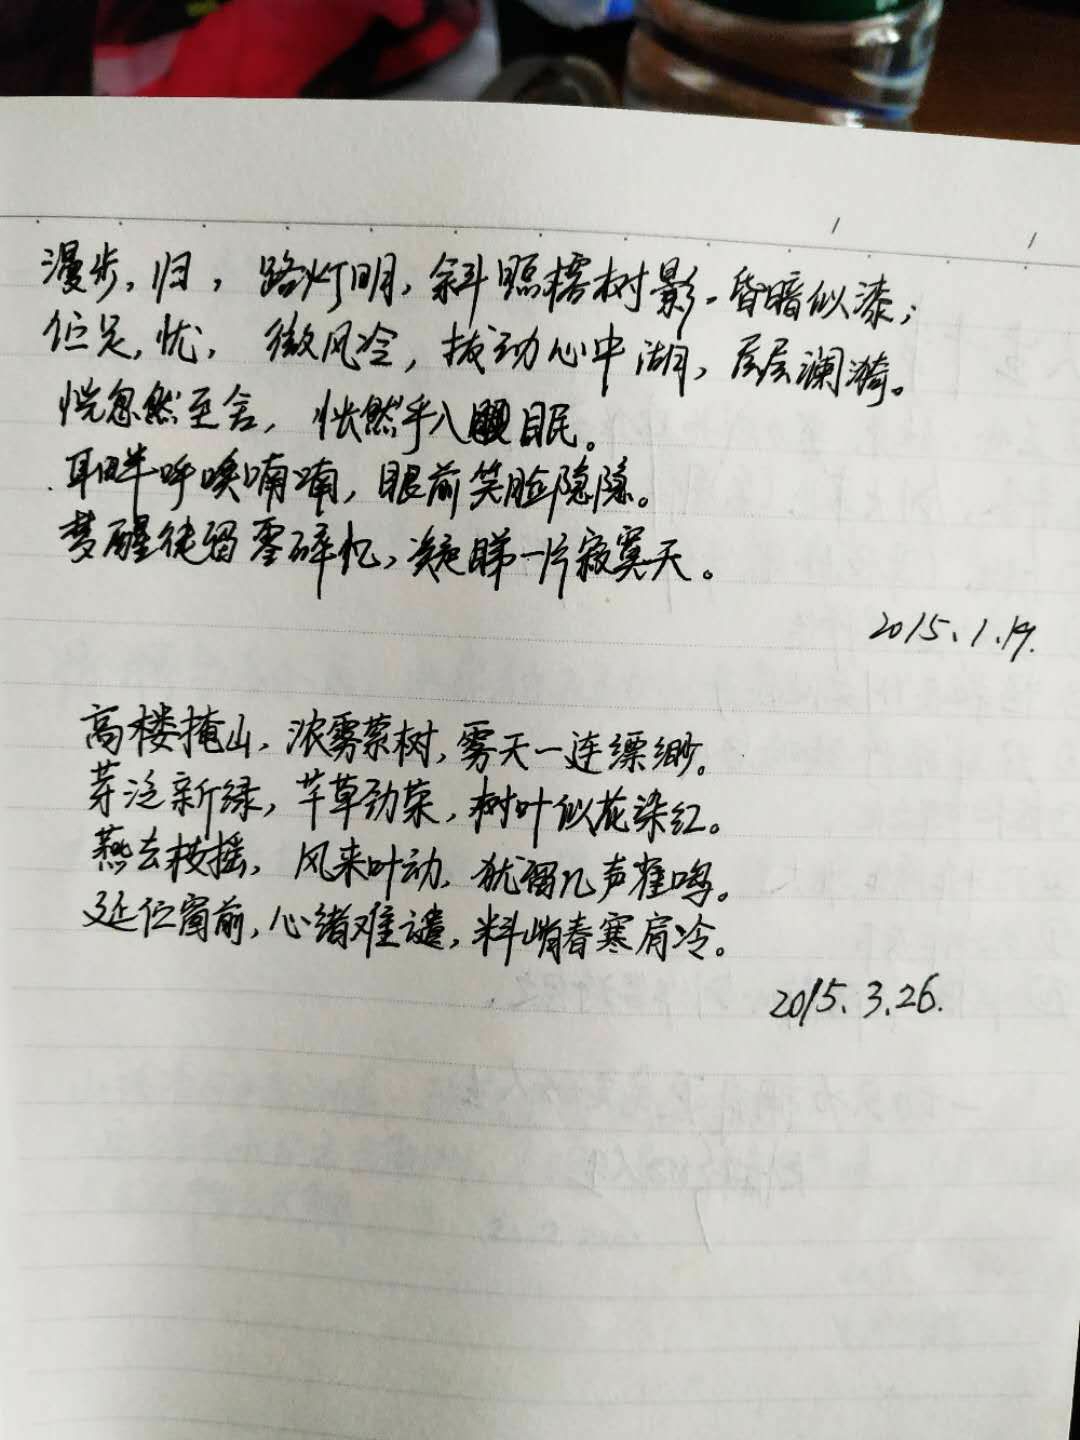 漫步,归,路灯明,斜照榕树影,昏暗似漆;
伫足,忧,微风冷,拨动心中湖,层层澜漪。
恍忽然至舍,怅然乎入眠。
耳畔呼唤喃喃,眼前笑脸隐隐。
梦醒徒留零碎忆,凝睇一片寂寞天。
2015.1.19.
高楼掩山,浓雾萦树,雾天一连缥缈。
芽泛新绿,芊草劲荣,树叶似花染红。
燕去枝摇,风来叶动,犹留几声雀鸣。
延伫窗前,心绪难谴,料峭春寒肩冷。
2015.3.26.